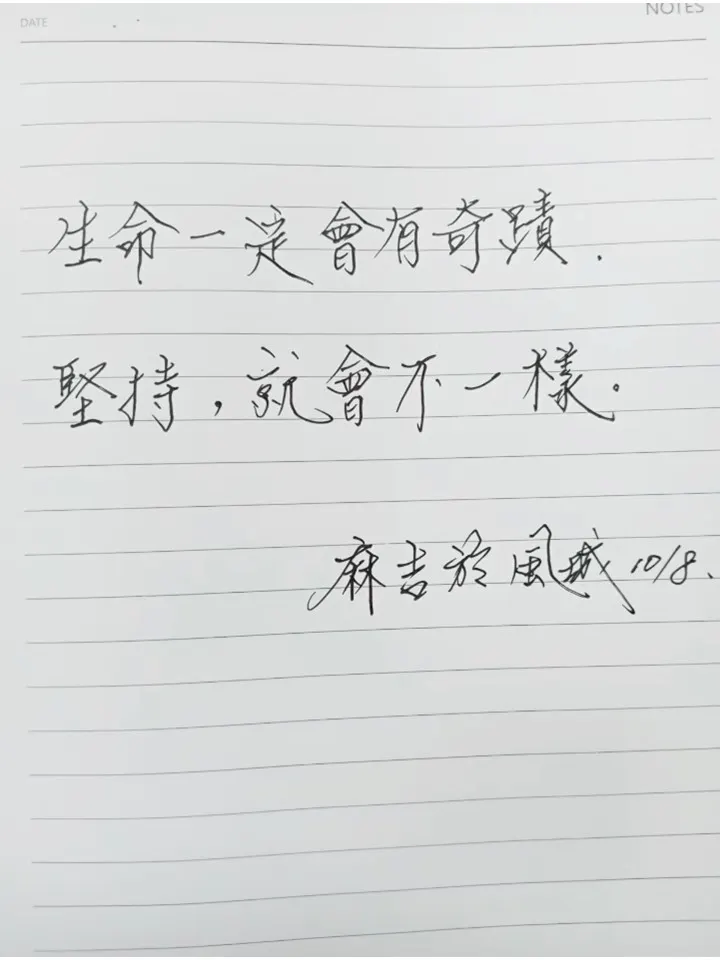 DATE
NOTES
生命一定會有奇蹟.
堅持,就會不一樣.
麻吉於風城 10/8.